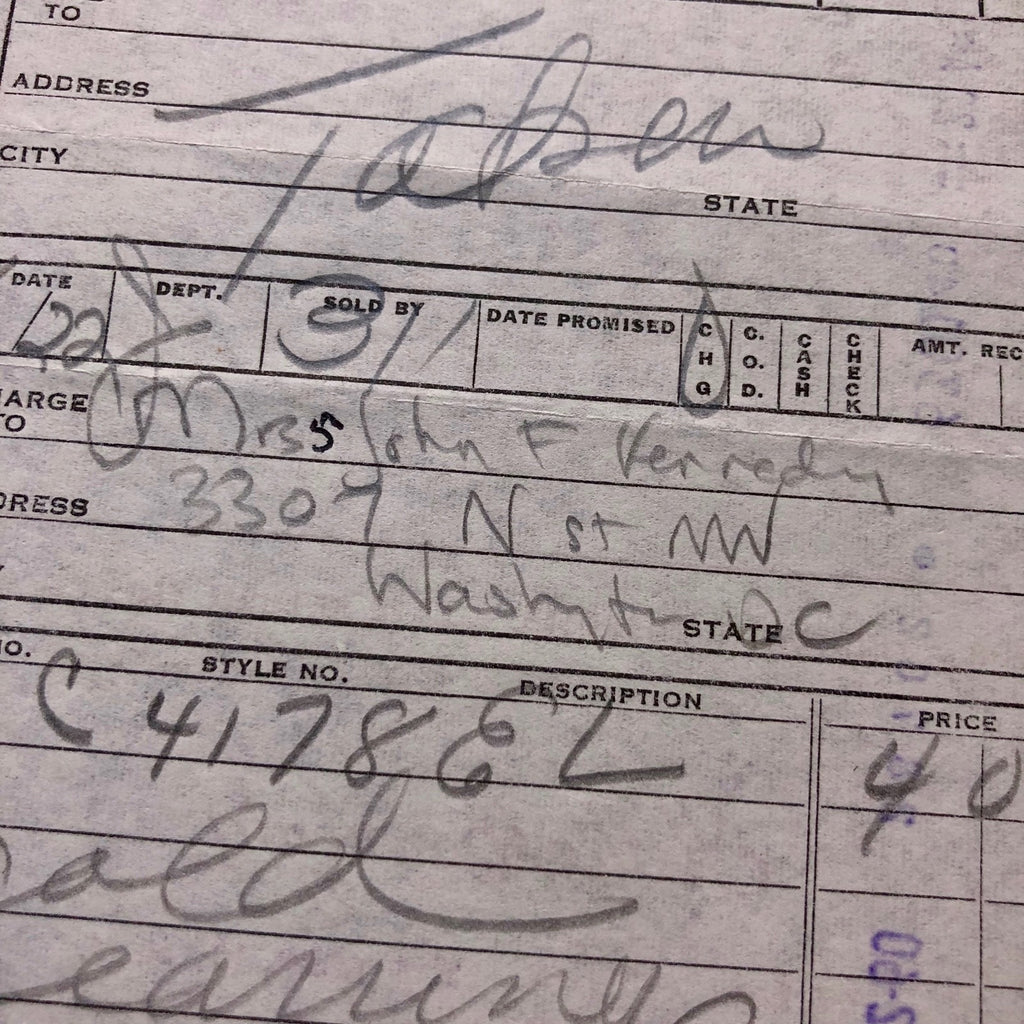 TO
ADDRESS
Taken
CITY
STATE
DATE DEPT. SOLD BY DATE PROMISED CHG C.O.D. CASH CHECK AMT. REC
/22 3
ARGE
TO
Mrs John F Kennedy
DRESS 3307 N st NW
Washington DC
STATE
O. STYLE NO. DESCRIPTION PRICE
C 4178 EL 40
old
earring